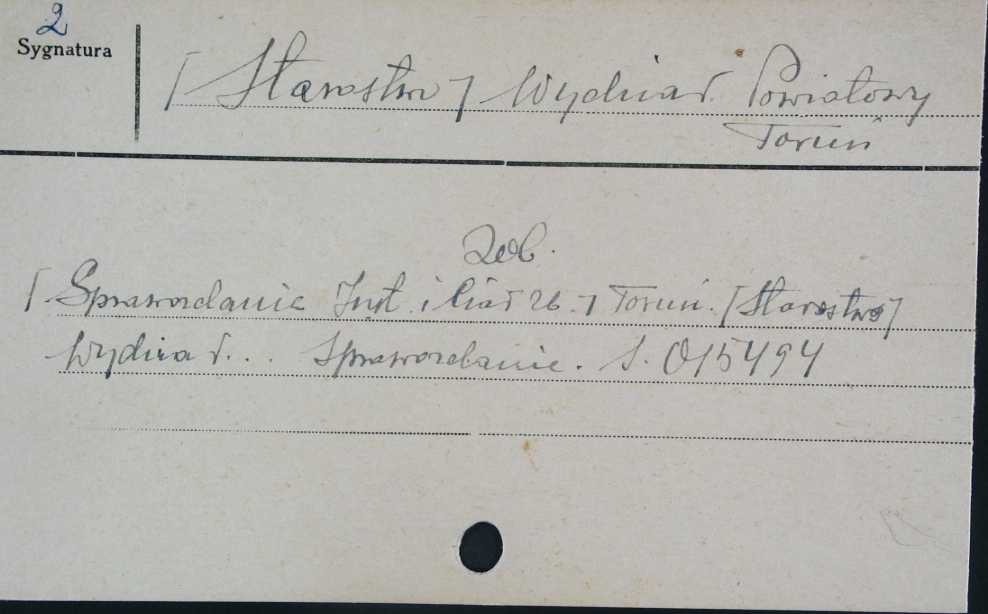 2
Sygnatura
[Starostwo] Wydział Powiatowy
Toruń
Zob.
[Sprawozdanie Inst. i Ciał 26.] Toruń. [Starostwo]
Wydział... Sprawozdanie. S. 015494